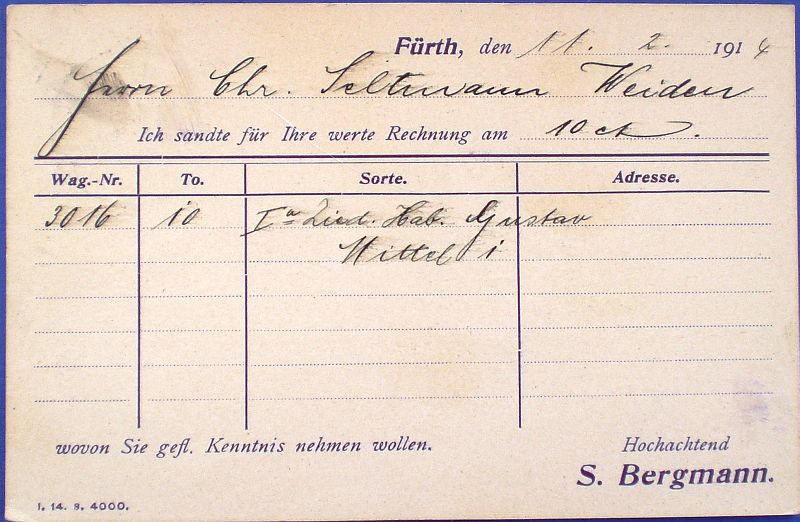 Fürth, den 11. 2. 1914
Herrn Chr. Seltmann Weiden
Ich sandte für Ihre werte Rechnung am 10 ct.
Wag.-Nr. To. Sorte. Adresse.
3016 10 Ia Hab. Gustav
Mittel i
wovon Sie gefl. Kenntnis nehmen wollen.
Hochachtend
S. Bergmann.
I. 14. 9. 4000.